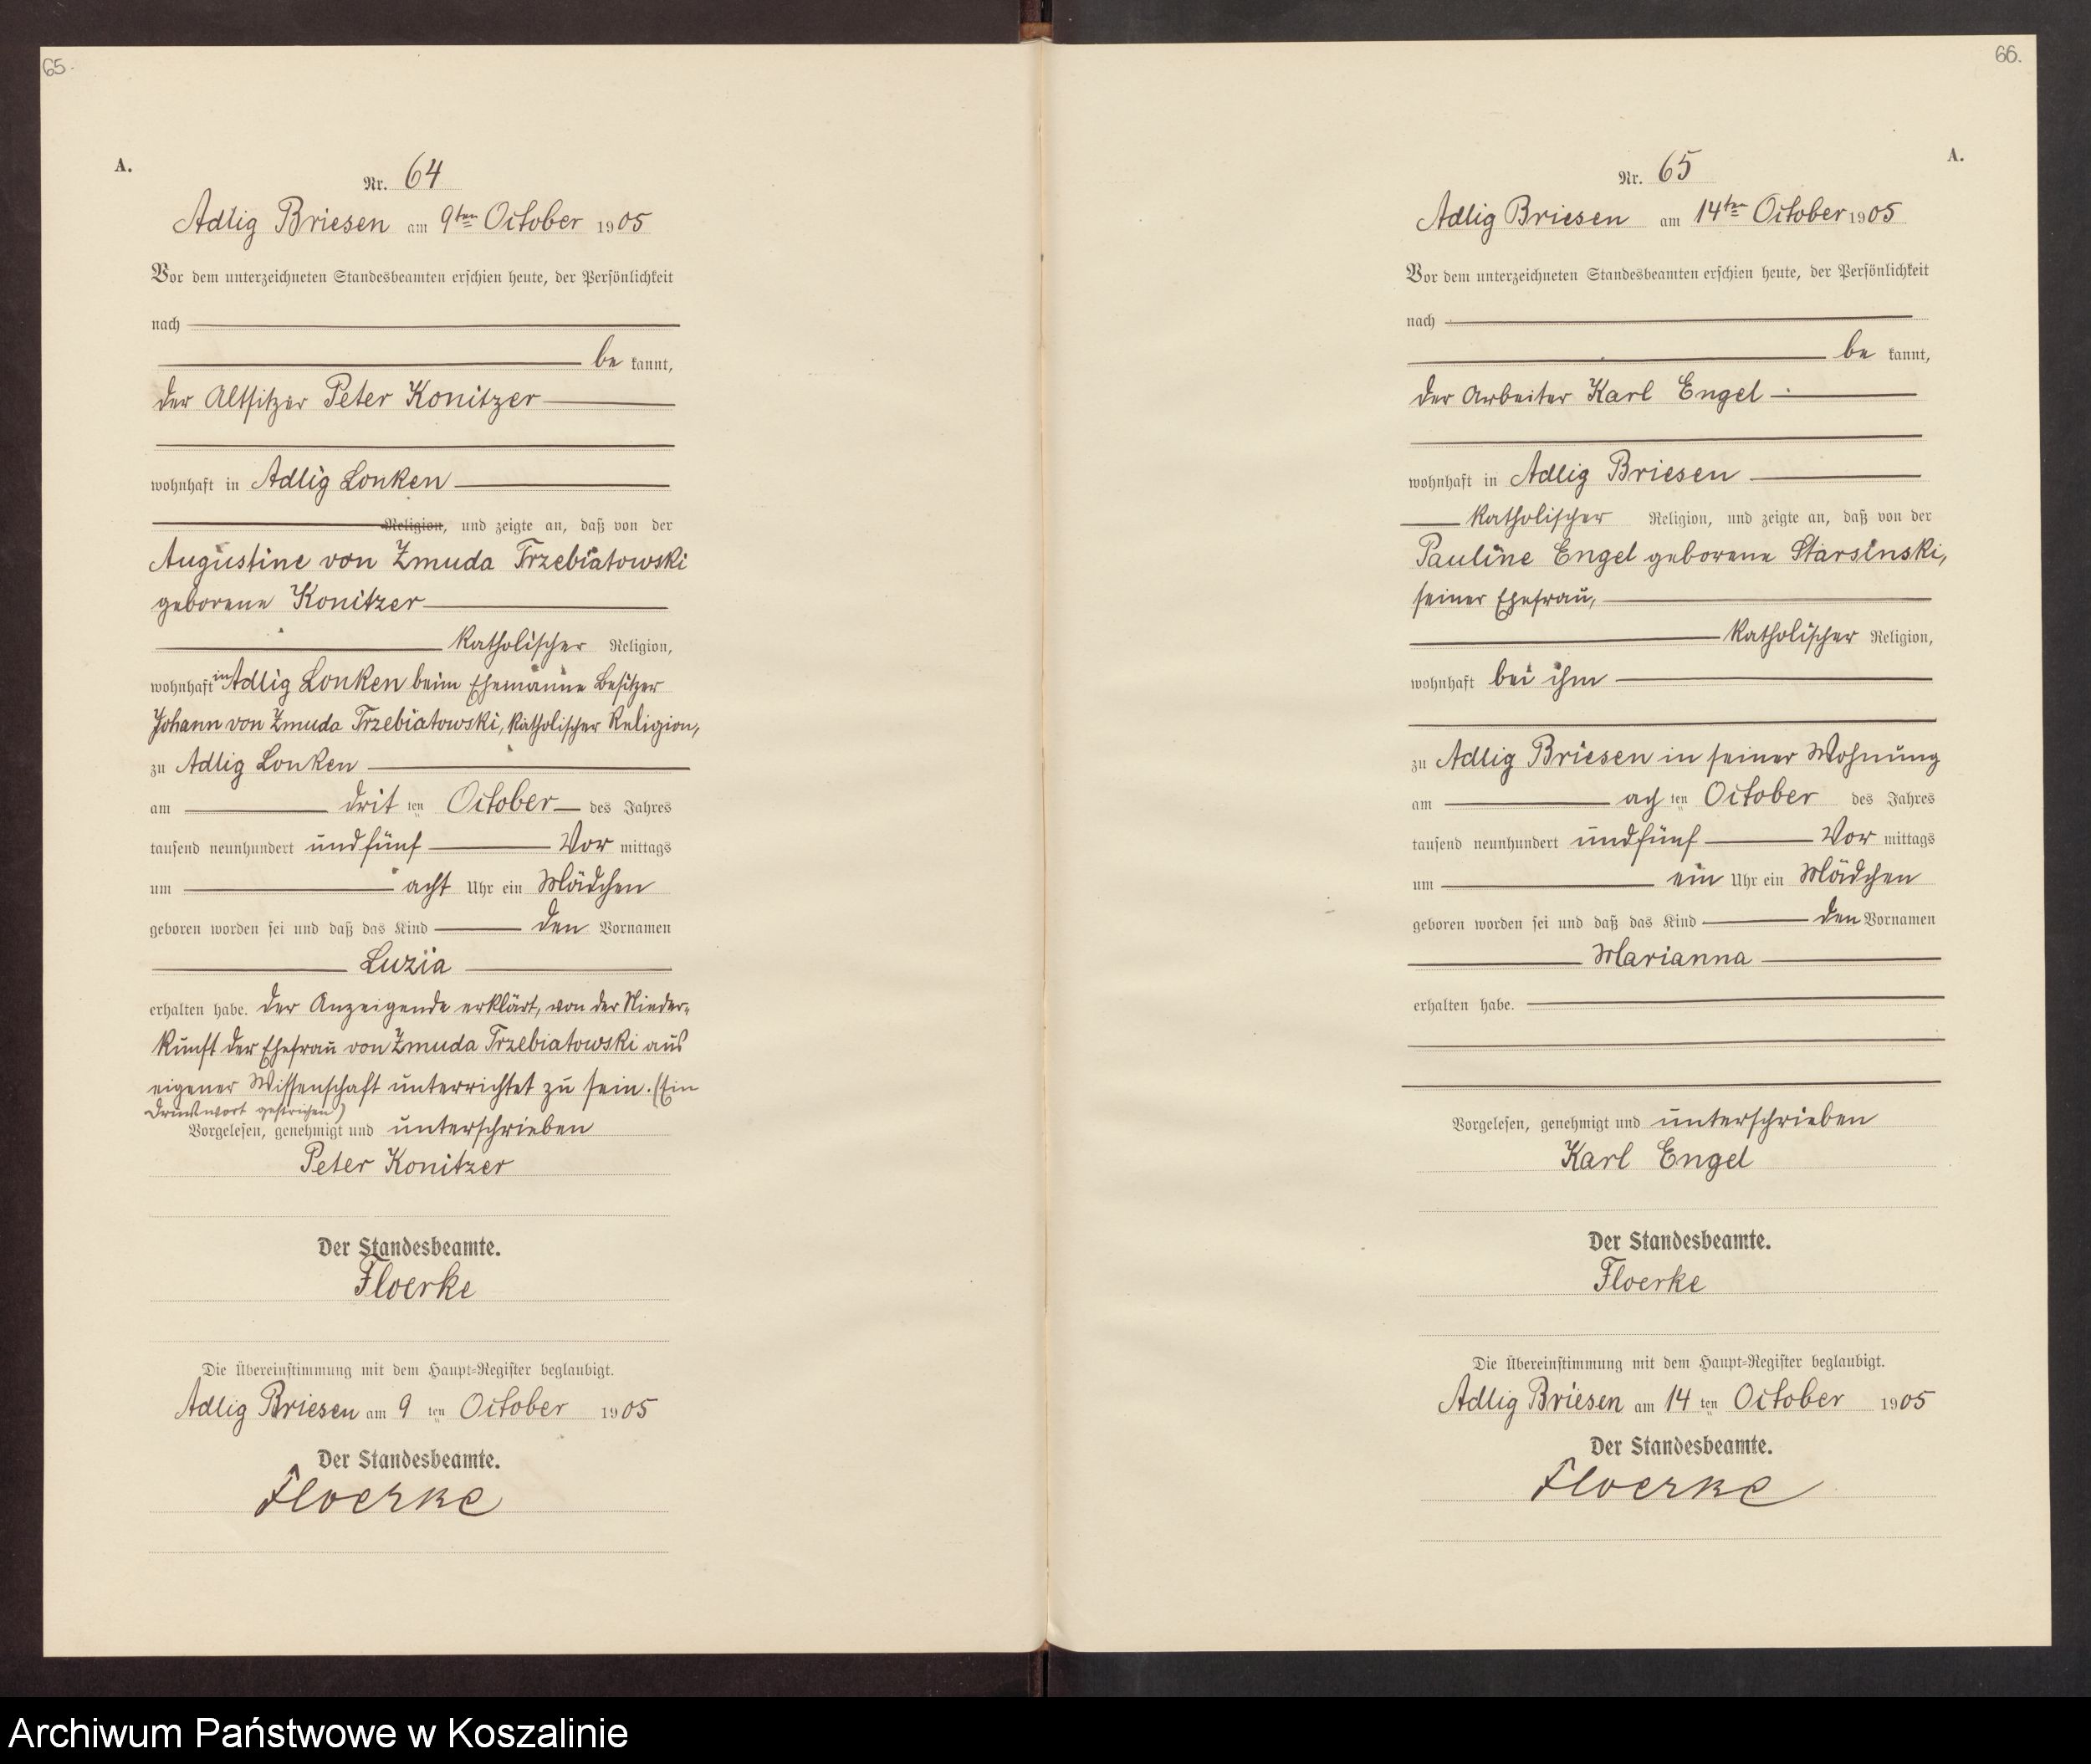 65.
A.
Nr. 64
Adlig Briesen am 9ten October 1905
Vor dem unterzeichneten Standesbeamten erschien heute, der Persönlichkeit
nach
be kannt,
der Altsitzer Peter Konitzer
wohnhaft in Adlig Lonken
Religion, und zeigte an, daß von der
Augustine von Zmuda Trzebiatowski
geborene Konitzer
katholischer Religion,
wohnhaft in Adlig Lonken beim Ehemanne Besitzer
Johann von Zmuda Trzebiatowski, katholischer Religion,
zu Adlig Lonken
am drit ten October des Jahres
tausend neunhundert und fünf Vor mittags
um acht Uhr ein Mädchen
geboren worden sei und daß das Kind den Vornamen
Luzia
erhalten habe. Der Anzeigende erklärt, von der Nieder-
kunft der Ehefrau von Zmuda Trzebiatowski aus
eigener Wissenschaft unterrichtet zu sein. (Ein
Druckwort gestrichen)
Vorgelesen, genehmigt und unterschrieben
Peter Konitzer
Der Standesbeamte.
Floerke
Die Übereinstimmung mit dem Haupt-Register beglaubigt.
Adlig Briesen am 9 ten October 1905
Der Standesbeamte.
Floerke
66.
A.
Nr. 65
Adlig Briesen am 14ten October 1905
Vor dem unterzeichneten Standesbeamten erschien heute, der Persönlichkeit
nach
be kannt,
der Arbeiter Karl Engel
wohnhaft in Adlig Briesen
katholischer Religion, und zeigte an, daß von der
Pauline Engel geborene Starsinski,
seiner Ehefrau,
katholischer Religion,
wohnhaft bei ihm
zu Adlig Briesen in seiner Wohnung
am ach ten October des Jahres
tausend neunhundert und fünf Vor mittags
um ein Uhr ein Mädchen
geboren worden sei und daß das Kind den Vornamen
Marianna
erhalten habe.
Vorgelesen, genehmigt und unterschrieben
Karl Engel
Der Standesbeamte.
Floerke
Die Übereinstimmung mit dem Haupt-Register beglaubigt.
Adlig Briesen am 14 ten October 1905
Der Standesbeamte.
Floerke
Archiwum Państwowe w Koszalinie